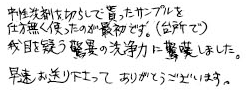 中性洗剤を切らして貰ったサンプルを
仕方無く使ったのが最初です。(台所で)
我目を疑う驚晏の洗浄力に驚嘆しました。
早速お送り下さって ありがとうございます。